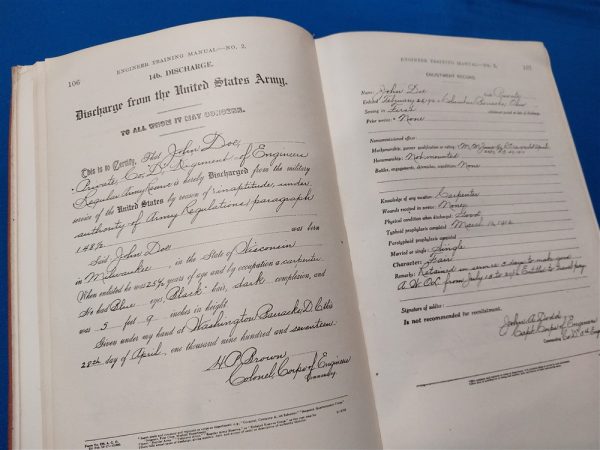 106
ENGINEER TRAINING MANUAL—NO. 2.
14b. DISCHARGE.
Discharge from the United States Army.
TO ALL WHOM IT MAY CONCERN:
This is to Certify, That John Doe,
Private, Co. D, Regiment of Engineers
Regular Army Reserve is hereby Discharged from the military
service of the United States by reason of inaptitude, under
authority of Army Regulations, paragraph
148½
Said John Doe was born
in Milwaukee in the State of Wisconsin
When enlisted he was years of age and by occupation a carpenter
He had Blue eyes, Black hair, dark complexion, and
was 5 feet 9 inches in height
Given under my hand at Washington Barracks, D.C. this
28th day of April, one thousand nine hundred and seventeen
Brown,
Colonel, Corps of Engineers
Commanding
ENGINEER TRAINING MANUAL—NO. 2.
107
ENLISTMENT RECORD.
Name: John Doe Grade: Private
Enlisted February Barracks, Ohio
Serving in First
Prior service: None
Noncommissioned officer:
Marksmanship, gunner qualification or rating:
Horsemanship: Not mounted
Battles, engagements, skirmishes, expeditions: None
Knowledge of any vocation: Carpenter
Wounds received in service: None
Physical condition when discharged: Good
Typhoid prophylaxis completed March
Paratyphoid prophylaxis completed
Married or single: Single
Character: Fair
Remarks: Retained in service days to make good
A.W.O.L. from July 10 to Entitled to travel pay
Signature of soldier:
Is not recommended for reenlistment.
John A. Dodd
Capt. Corps of Engineers
Commanding